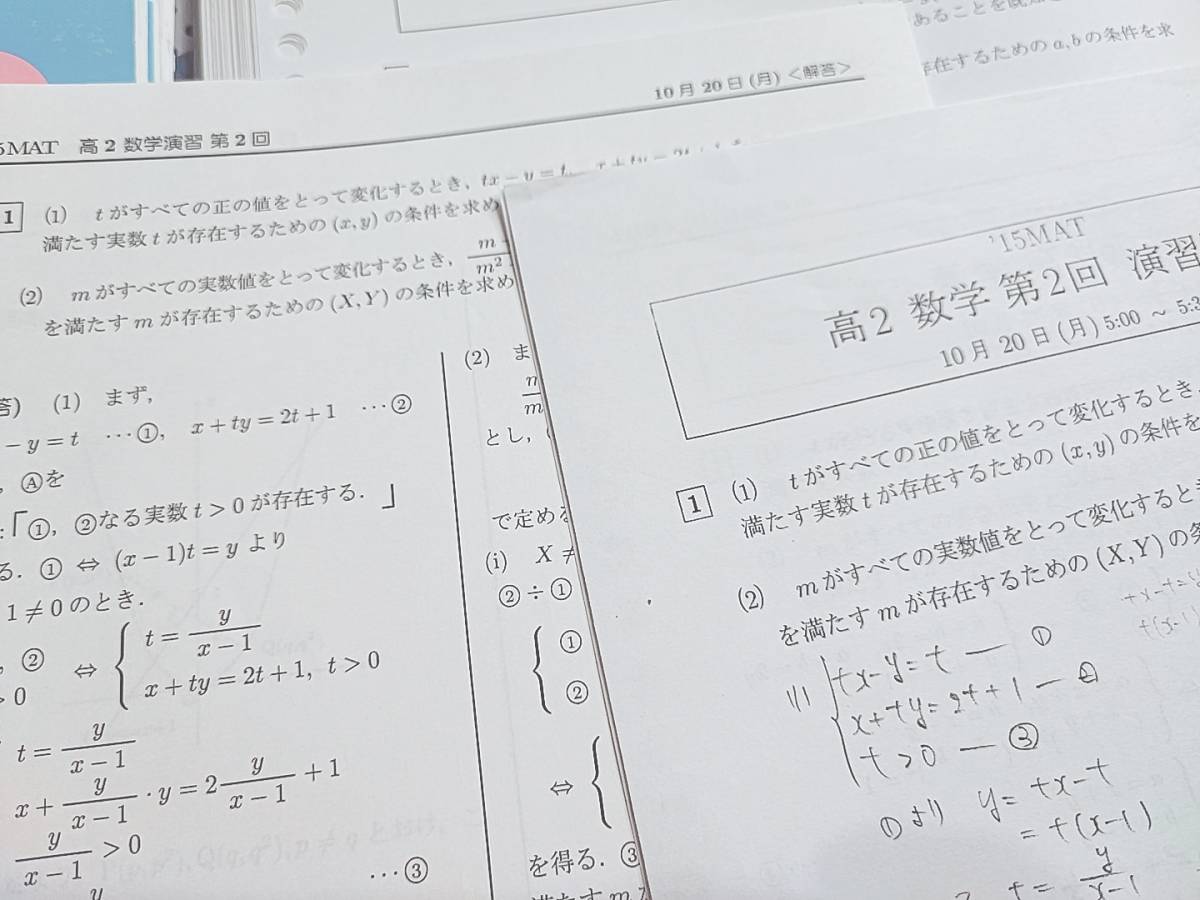 あることを既知
存在するための a,b の条件を求
10 月 20 日 (月) <解答>
5MAT 高 2 数学演習 第 2 回
1 (1) t がすべての正の値をとって変化するとき, tx − y = t,
満たす実数 t が存在するための (x, y) の条件を求め
(2) m がすべての実数値をとって変化するとき, m
m²
を満たす m が存在するための (X, Y) の条件を求め
答) (1) まず,
− y = t ･･･①, x + ty = 2t + 1 ･･･②
, Ⓐを
:「①, ②なる実数 t > 0 が存在する.」
る. ① ⇔ (x − 1)t = y より
1 ≠ 0 のとき.
, ② ⇔ { t = y/(x − 1)
> 0 x + ty = 2t + 1, t > 0
t = y/(x − 1)
x + y/(x − 1) · y = 2 y/(x − 1) + 1
y/(x − 1) > 0 ･･･③
y
(2) ま
m
とし,
で定める
(i) X ≠
② ÷ ①
{ ①
②
⇔ {
を得る. ③
満たす m
'15MAT
高2 数学 第2回 演習
10 月 20 日 (月) 5:00 ～ 5:3
1 (1) t がすべての正の値をとって変化するとき,
満たす実数 t が存在するための (x, y) の条件を
(2) m がすべての実数値をとって変化するとき
を満たす m が存在するための (X, Y) の条
(1) { tx − y = t ― ①
x + ty = 2t + 1 ― ②
t > 0 ― ③
①より y = tx − t
= t(x − 1)
t = y/(x − 1)